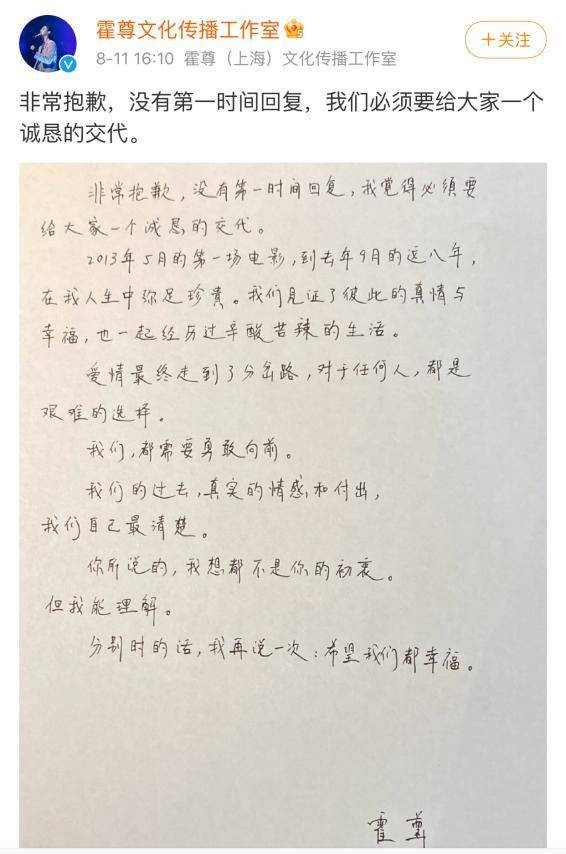 霍尊文化传播工作室
8-11 16:10 霍尊（上海）文化传播工作室
+关注
非常抱歉，没有第一时间回复，我们必须要给大家一个
诚恳的交代。
非常抱歉，没有第一时间回复，我觉得必须要
给大家一个诚恳的交代。
2013年5月的第一场电影，到去年9月的这八年，
在我人生中弥足珍贵。我们见证了彼此的真情与
幸福，也一起经历过辛酸苦辣的生活。
爱情最终走到了分岔路，对于任何人，都是
艰难的选择。
我们，都需要勇敢向前。
我们的过去，真实的情感和付出，
我们自己最清楚。
你所说的，我想都不是你的初衷。
但我能理解。
分别时的话，我再说一次：希望我们都幸福。
霍尊